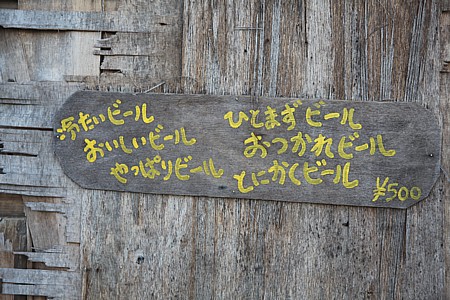 冷たいビール
おいしいビール
やっぱりビール
ひとまずビール
おつかれビール
とにかくビール
¥500